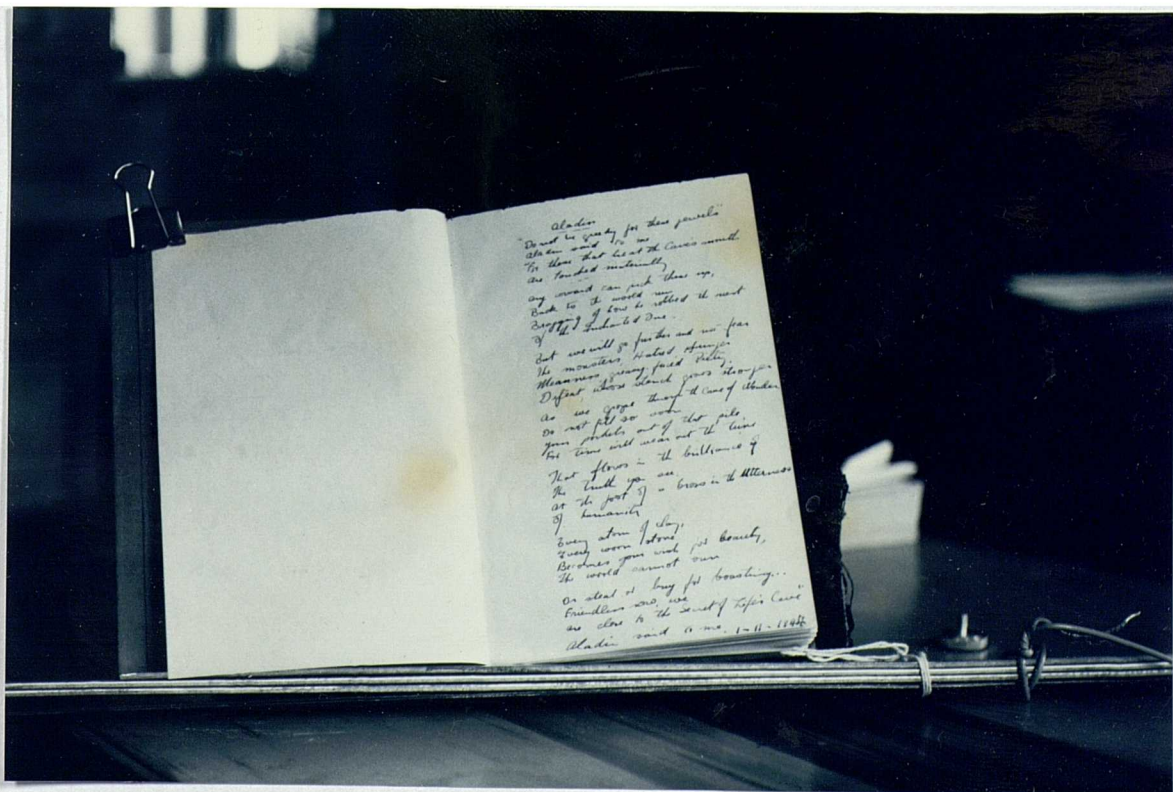 Aladin
"Do not be greedy for these jewels"
Aladin said to me
For those that lie at the Cave's mouth
are touched materially
any coward can pick them up,
Back to the world run
Bragging of how he robbed the
of the Enchanted One.
But we will go further and no fear
The monsters, Hatred Hunger
Meanness greasy faced Pretty
Defeat whose stench grows stronger
As we grope through the Cave of Wonder
Do not fill so soon
your pockets out of that pile,
For time will wear out the
That flows in the brilliance of
The truth you see
at the foot of a Cross in the Utterness
of humanity
Every atom of clay,
Every worn stone
Becomes your wish for beauty,
The world cannot own
Or steal or buy for boasting...
Friendless now, we
are close to the secret of Life's Cave"
Aladin said to me. 1-11-